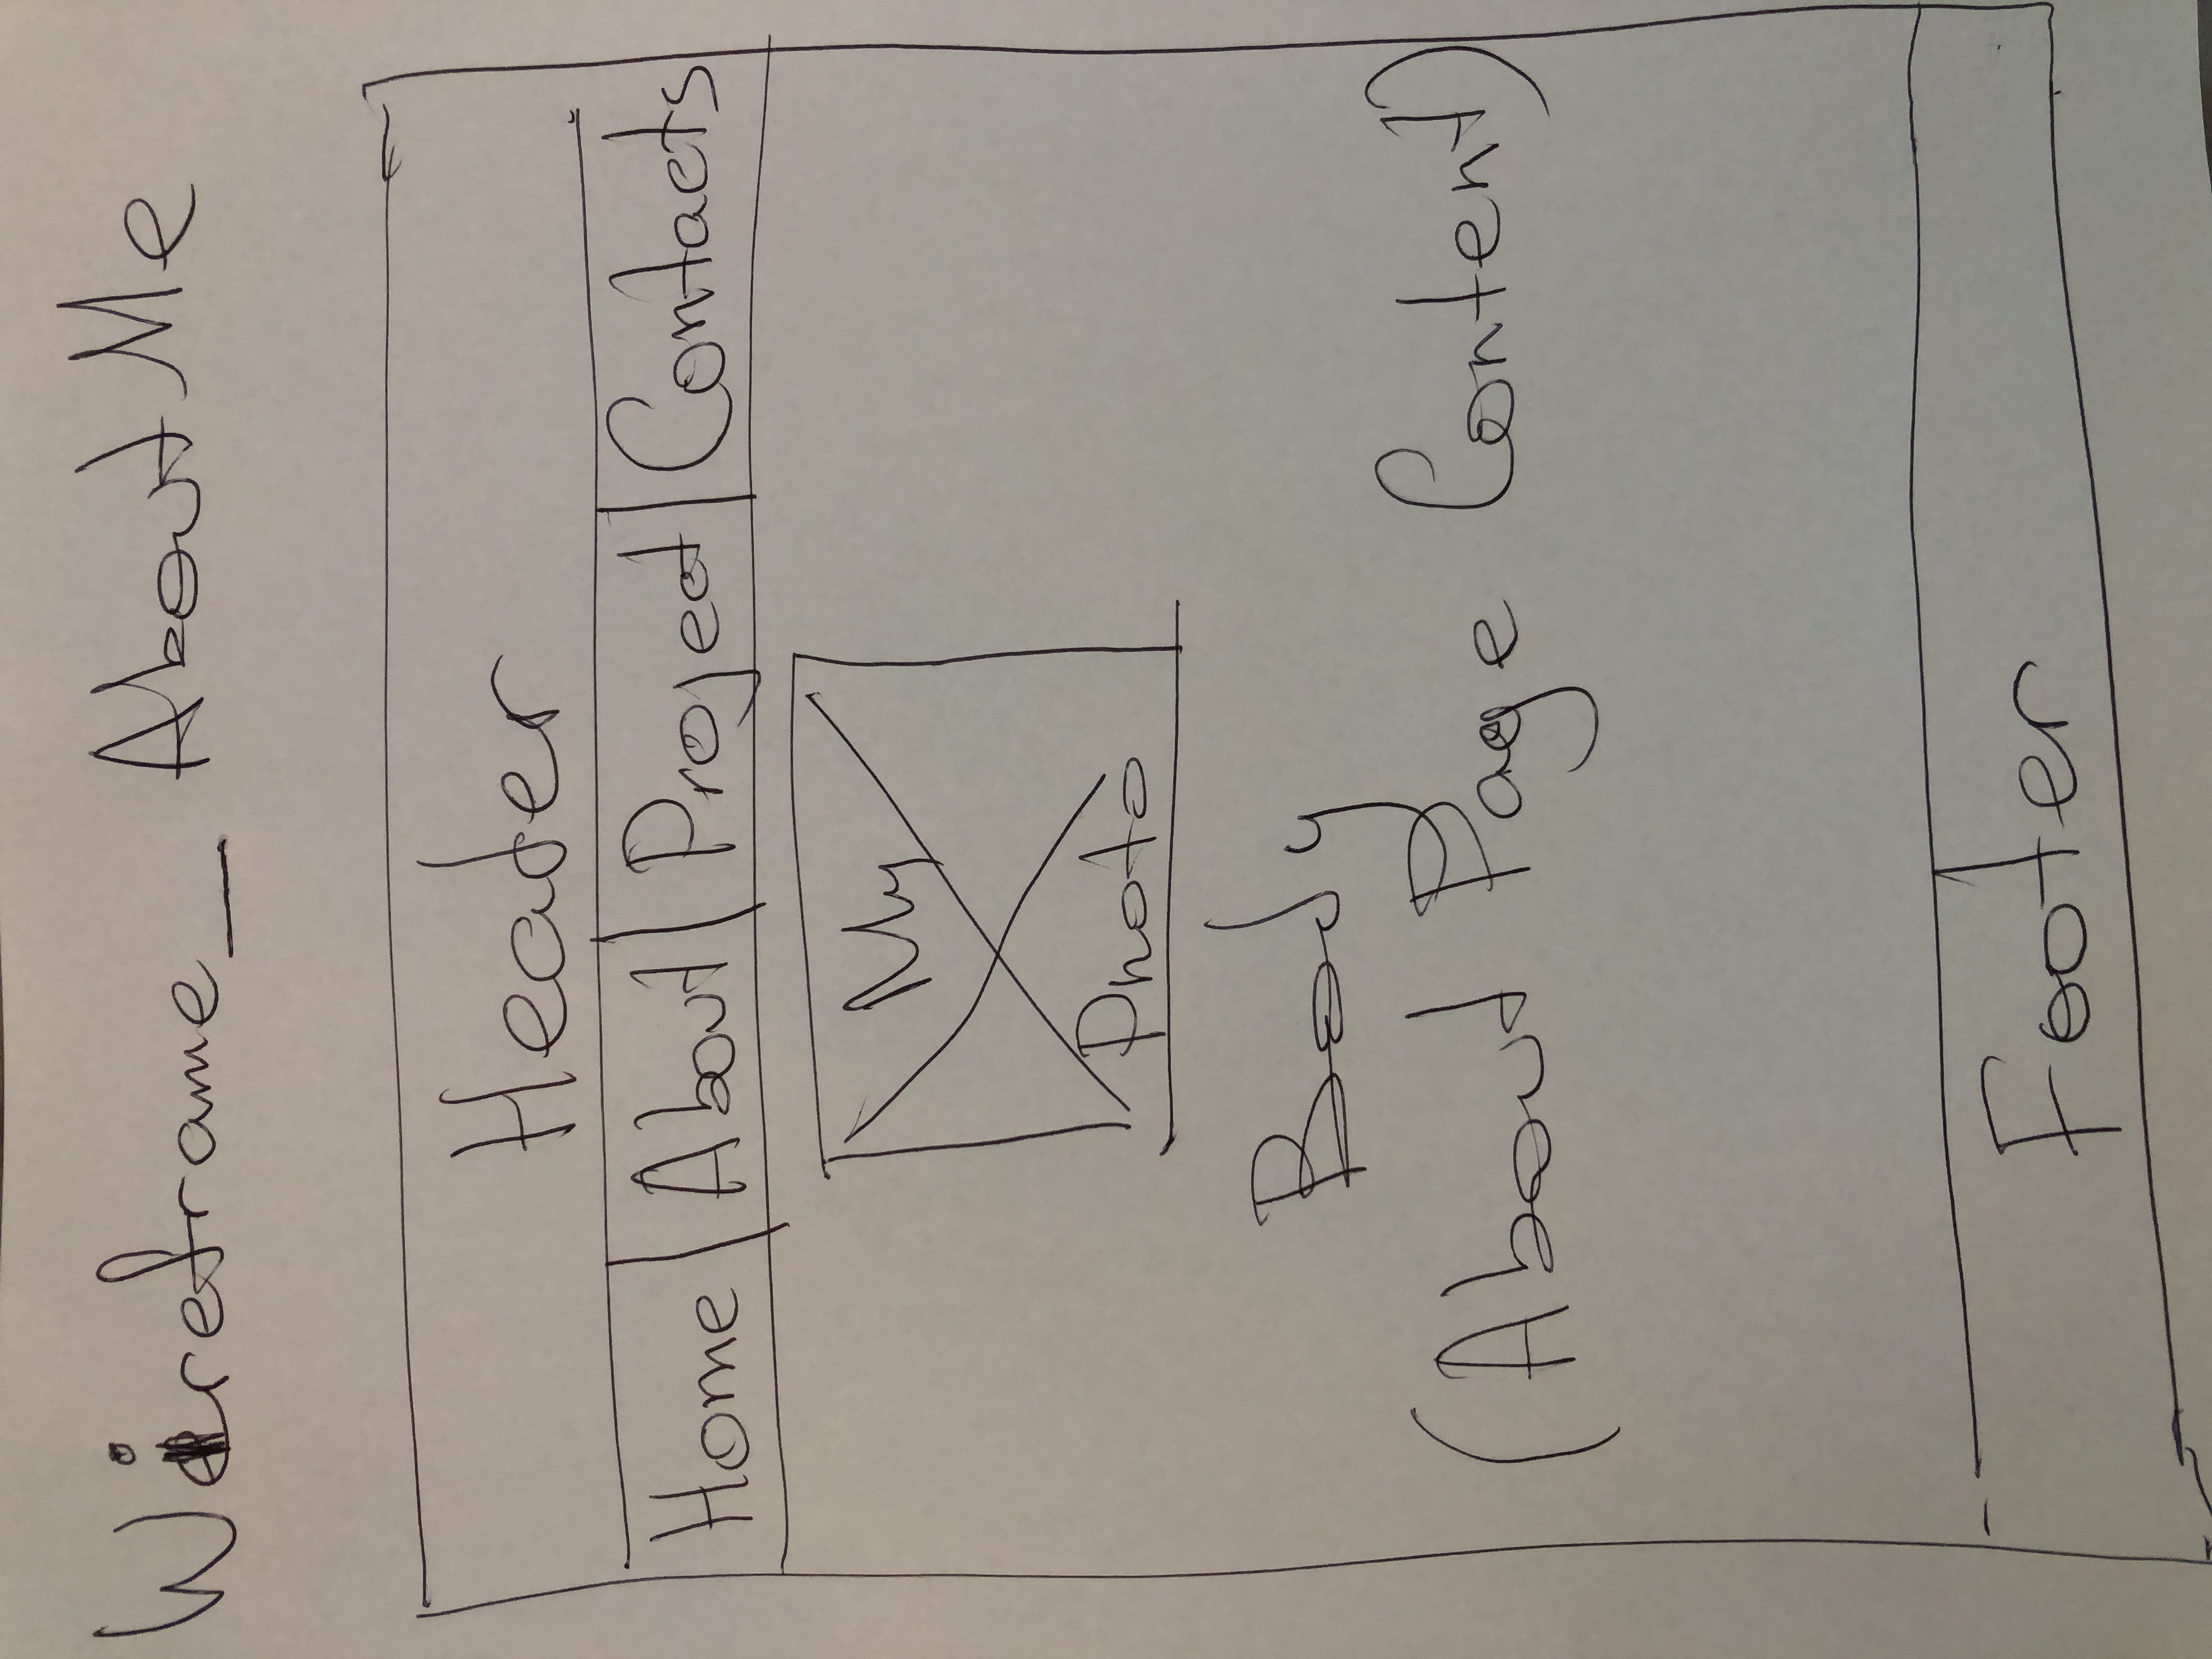 Wireframe_ About Me
Header
Home About Project Contacts
My
Photo
Body
(About Page Content)
Footer